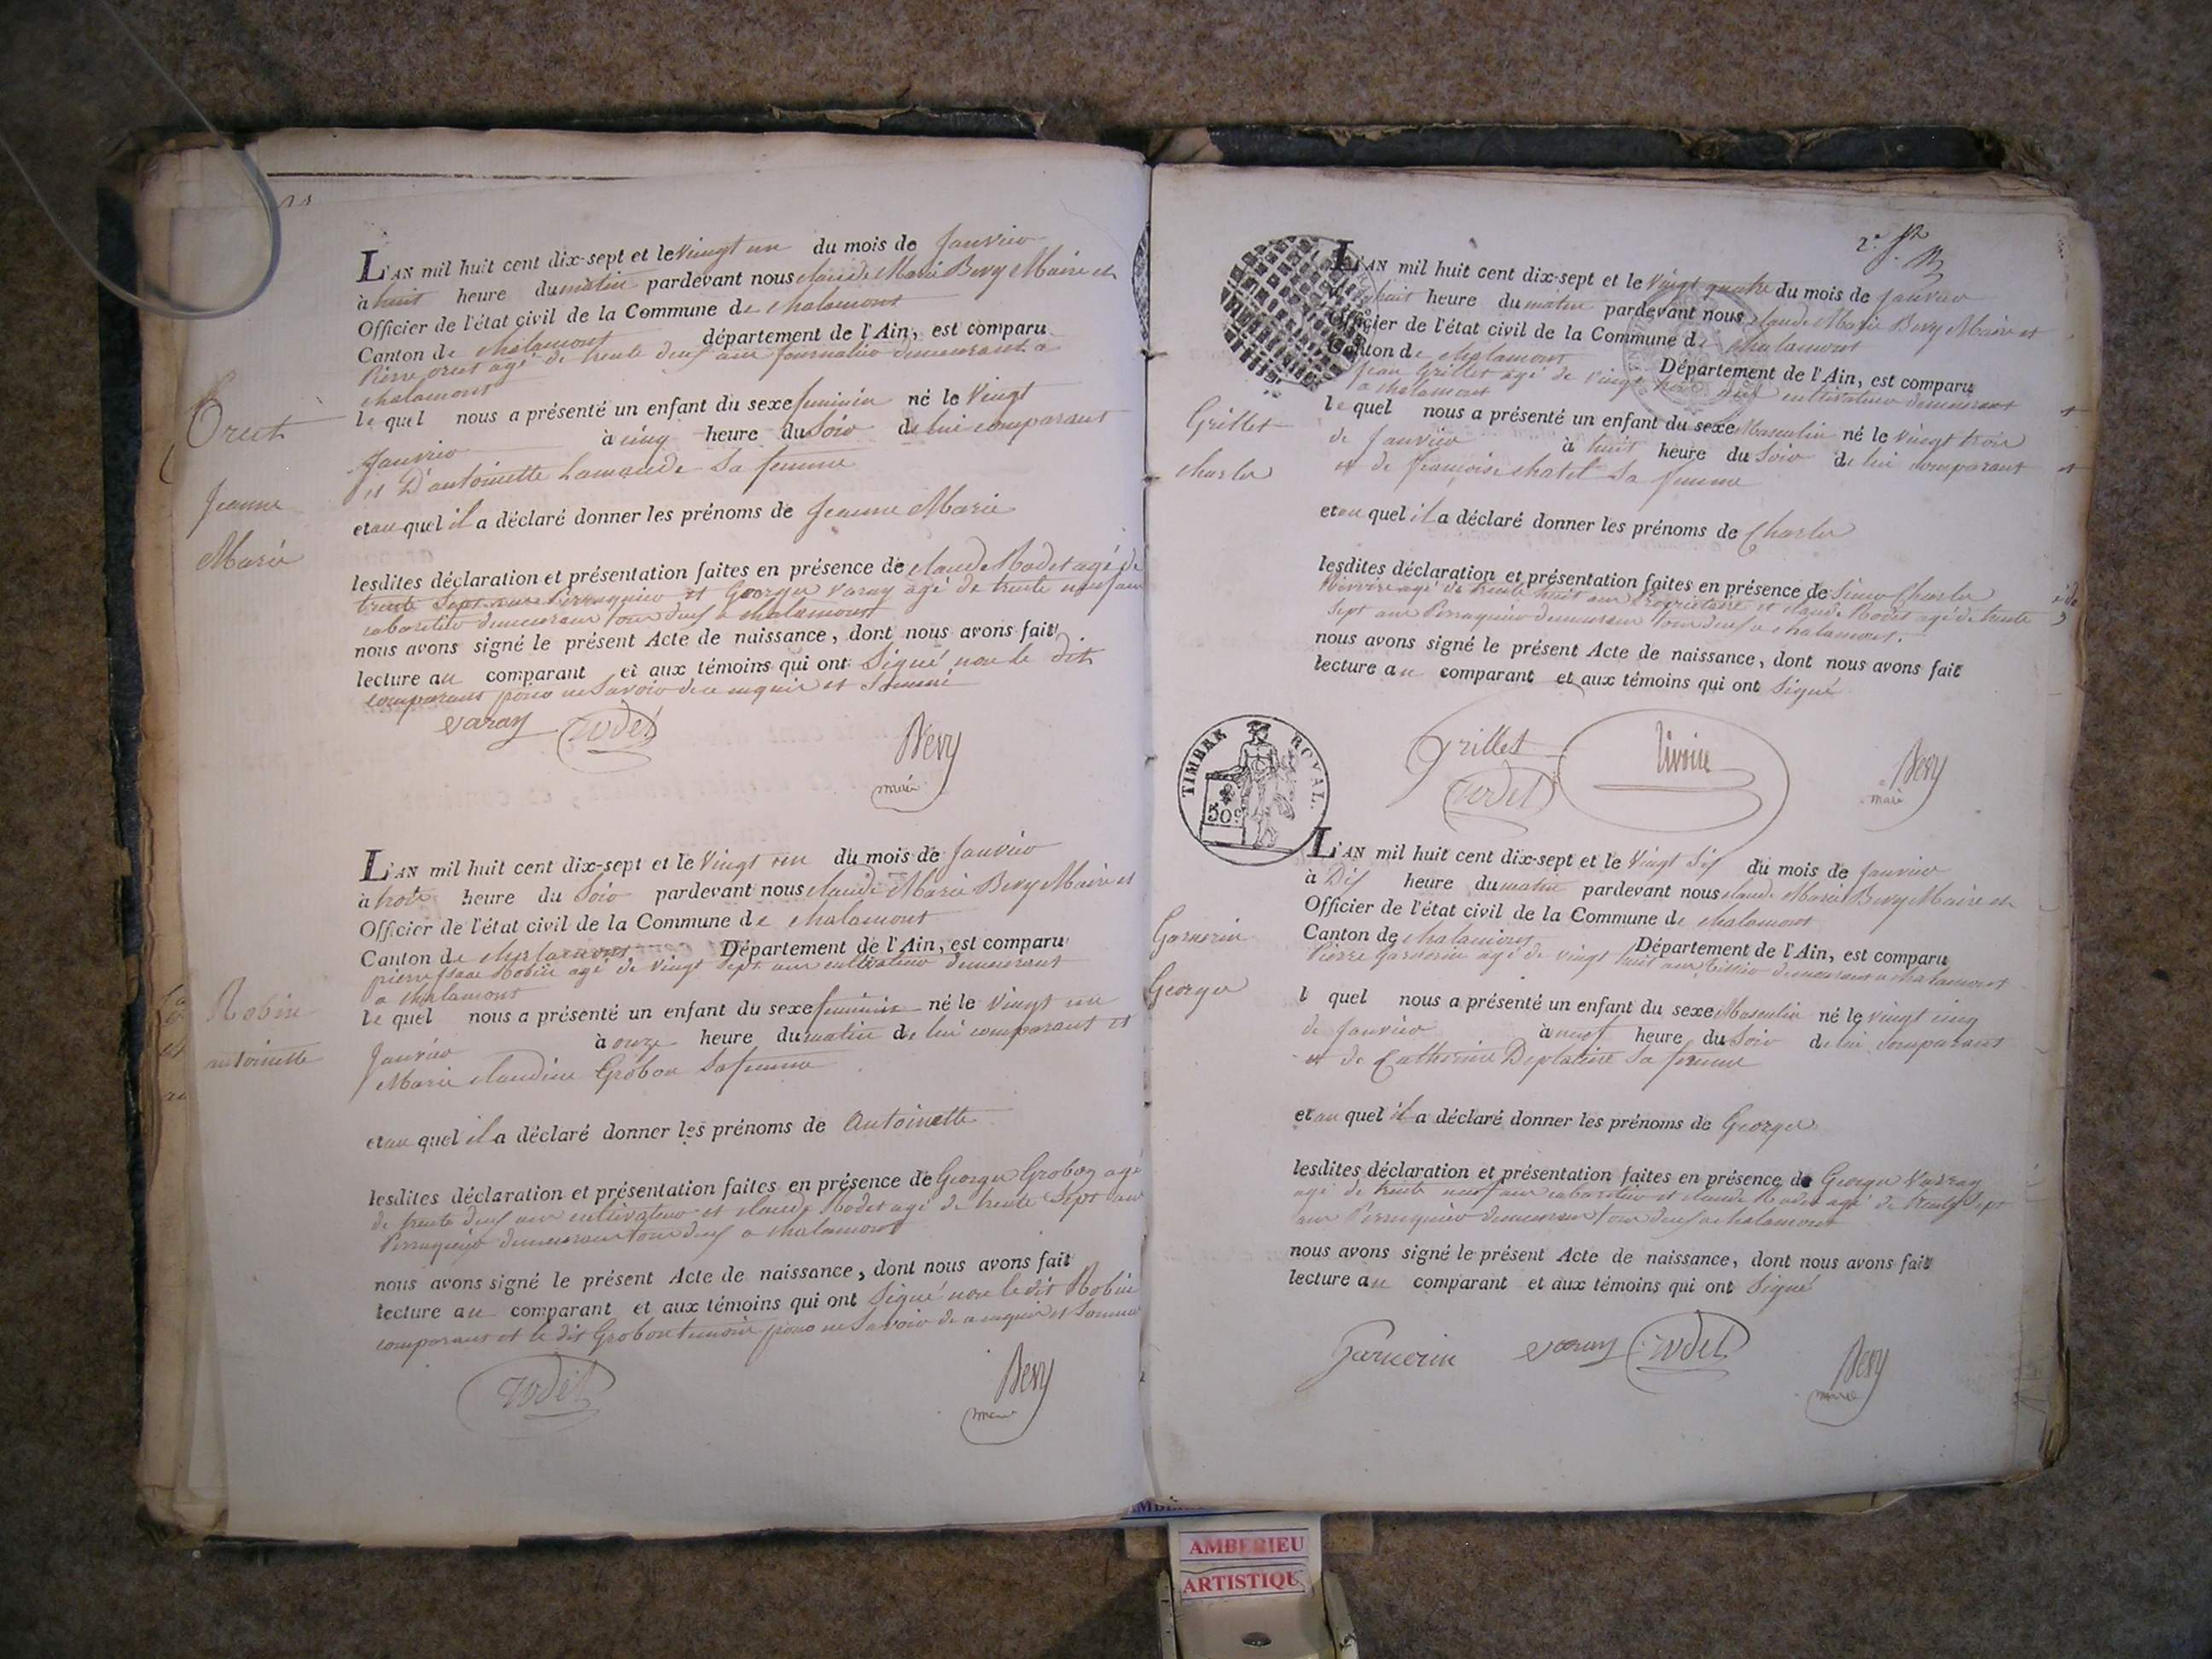 L'AN mil huit cent dix-sept et le vingt un du mois de Janvier
à huit heure du matin pardevant nous Claude Marie Bevy Maire et
Officier de l'état civil de la Commune de Chalamont
Canton de Chalamont département de l'Ain, est comparu
Pierre Orcet agé de trente deux ans journalier demeurant a
chalamont
le quel nous a présenté un enfant du sexe feminin né le vingt
Janvier à cinq heure du Soir de lui comparant
et D'antoinette Lamande Sa femme
et au quel il a déclaré donner les prénoms de Jeanne Marie
lesdites déclaration et présentation faites en présence de claude Rodet agé de
trente Sept ans Perruquier et George Varay agé de trente neuf ans
cabaretier demeurans tous deux a chalamont
nous avons signé le présent Acte de naissance, dont nous avons fait
lecture au comparant et aux témoins qui ont Signé non le dit
comparant pour ne Savoir de ce enquis et Sommé
varay rodet Bevy
maire
Orcet
Jeanne
Marie
L'AN mil huit cent dix-sept et le Vingt un du mois de Janvier
à trois heure du Soir pardevant nous claude Marie Bevy Maire et
Officier de l'état civil de la Commune de Chalamont
Canton de Chalamont Département de l'Ain, est comparu
pierre Isaac Robin agé de vingt Sept ans cultivateur demeurant
a chalamont
le quel nous a présenté un enfant du sexe feminin né le Vingt un
Janvier à onze heure du matin de lui comparant et
Marie claudine Grobon Sa femme
et au quel il a déclaré donner les prénoms de Antoinette
lesdites déclaration et présentation faites en présence de George Grobon agé
de trente deux ans cultivateur et claude Rodet agé de trente Sept ans
Perruquier demeurans tous deux a chalamont
nous avons signé le présent Acte de naissance, dont nous avons fait
lecture au comparant et aux témoins qui ont Signé non le dit Robin
comparant et le dit Grobon temoin pour ne Savoir de ce enquis et Sommé
rodet Bevy
maire
Robin
antoinette
2e
L'AN mil huit cent dix-sept et le vingt quatre du mois de Janvier
à huit heure du matin pardevant nous claude Marie Bevy Maire et
Officier de l'état civil de la Commune de Chalamont
Canton de chalamont Département de l'Ain, est comparu
Jean Grillet agé de vingt neuf ans cultivateur demeurant
a chalamont
le quel nous a présenté un enfant du sexe Masculin né le vingt trois
de Janvier à huit heure du Soir de lui comparant
et de françoise chatel Sa femme
et au quel il a déclaré donner les prénoms de Charles
lesdites déclaration et présentation faites en présence de Simon Charles
Vivoire agé de trente huit ans Proprietaire et claude Rodet agé de trente
Sept ans Perruquier demeurans tous deux a chalamont.
nous avons signé le présent Acte de naissance, dont nous avons fait
lecture au comparant et aux témoins qui ont Signé
Grillet rodet Bevy
maire
Grillet
charles
TIMBRE ROYAL.
50c
L'AN mil huit cent dix-sept et le Vingt Six du mois de Janvier
à Dix heure du matin pardevant nous claude Marie Bevy Maire et
Officier de l'état civil de la Commune de chalamont
Canton de chalamont Département de l'Ain, est comparu
Pierre Garnerin agé de vingt huit ans tissier demeurant a chalamont
l quel nous a présenté un enfant du sexe Masculin né le vingt cinq
de Janvier à neuf heure du Soir de lui comparant
et de Catherine Deplatine Sa femme
et au quel il a déclaré donner les prénoms de George
lesdites déclaration et présentation faites en présence de George Varay
agé de trente neuf ans cabaretier et claude Rodet agé de trente Sept
ans Perruquier demeurans tous deux a chalamont
nous avons signé le présent Acte de naissance, dont nous avons fait
lecture au comparant et aux témoins qui ont Signé
Garnerin varay rodet Bevy
maire
Garnerin
George
AMBERIEU
ARTISTIQUE